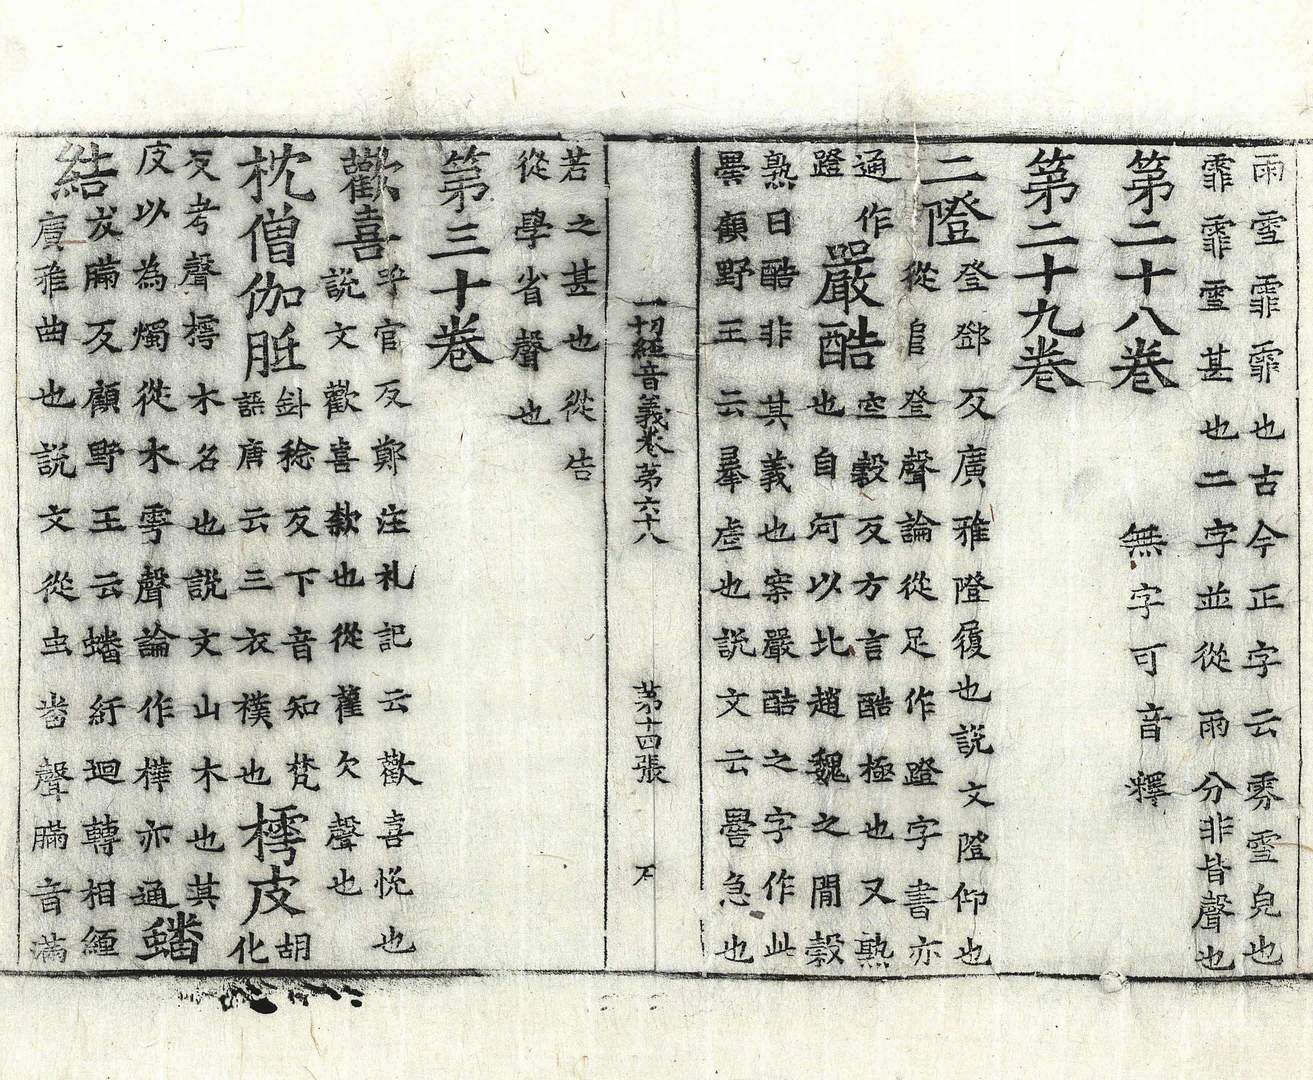 雨雪霏霏也古今正字云雰雪皃也
霏霏雪甚也二字並從雨分非皆聲也
第二十八卷
無字可音釋
第二十九卷
二隥
登鄧反廣雅隥履也說文隥仰也
從𨸏登聲論從足作蹬字書亦
通作
蹬
嚴酷
空穀反方言酷極也又熟
也自河以北趙魏之閒穀
熟曰酷非其義也案嚴酷之字作此
嚳顧野王云嚳虐也說文云嚳急也
一切經音義卷第六十八
第十四張
若之甚也從告
從學省聲也
第三十卷
歡喜
乎官反鄭注札記云歡喜悅也
說文歡喜欵也從雚欠聲也
枕僧伽胝
針稔反下音知梵
語唐云三衣襆也
樗皮
胡
化
反考聲樗木名也說文山木也其
皮以為燭從木雩聲論作樺亦通
蟠
結
㞎瞞反顧野王云蟠紆迴轉相纏
廣雅曲也說文從虫番聲瞞音滿